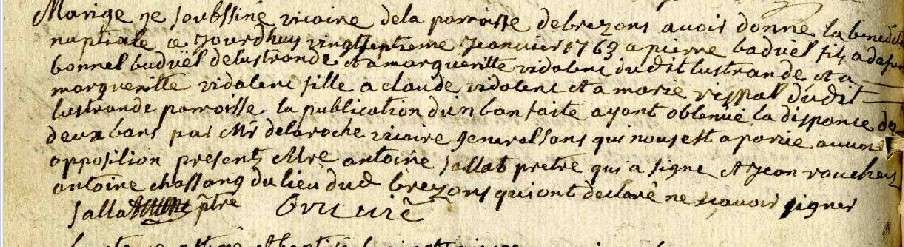 Mariage Je soubssine vicaire dela parroisse debrezons avois donne la bened
nuptiale a Jourdhuy vingtseptieme Jeanvier 1763 a pierre baduel fils a defun
bonnet baduël delustrande et a margueritte vidalenc du dit lustrande et a
marguerite vidalenc fille a claude vidalenc et a marie vessal dudit
lustrande parroisse la publication dun ban faite ayant obtenue la dispance de
deux bans par Mr delaroche vicaire general sans qui nous est aparue aucune
opposition presents Mre antoine sallat pretre qui a signe et Jean rauchers
antoine chassang du lieu dud brezons qui ont declaré ne scavoir signer
Sallat ptre